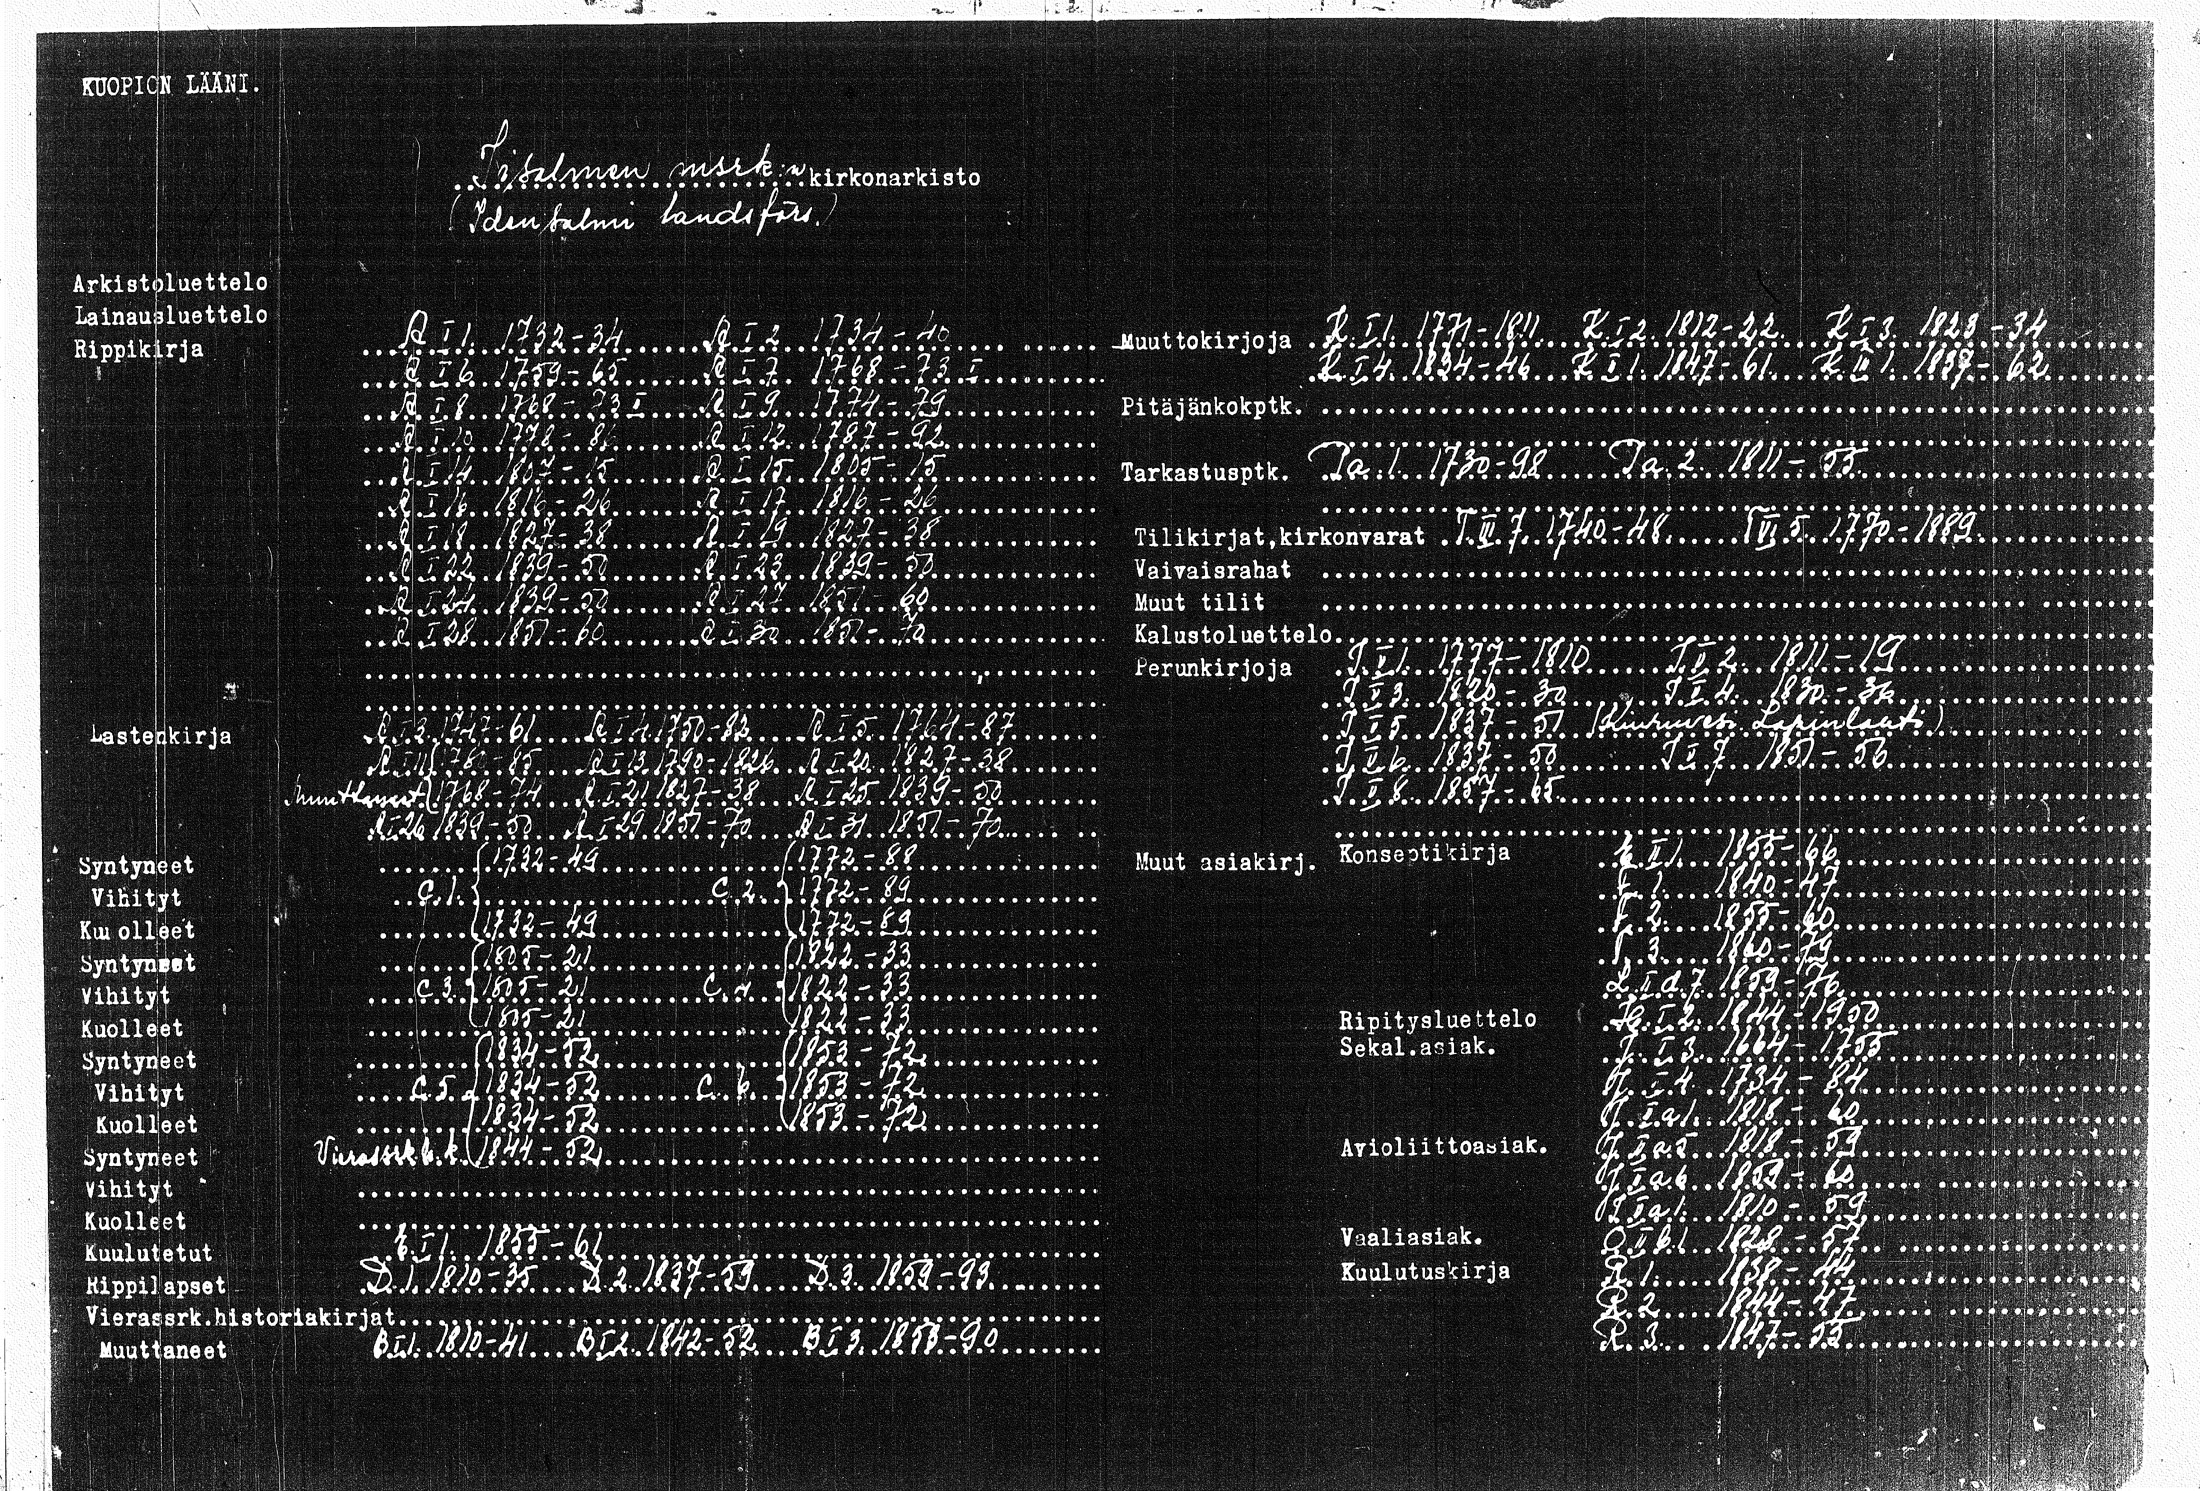 KUOPION LÄÄNI.
Iisalmen msrk:n kirkonarkisto
(Idensalmi landsförs.)
Arkistoluettelo
Lainausluettelo
Rippikirja R I 1. 1732-34 R I 2 1734-40
R I 6 1759-65 R I 7 1768-73 I
R I 8 1768-73 I R I 9 1774-79
R I 10 1778-86 R I 12 1787-92
R I 14 1807-15 R I 15 1805-15
R I 16 1816-26 R I 17 1816-26
R I 18 1827-38 R I 19 1827-38
R I 22 1839-50 R I 23 1839-50
R I 24 1839-50 R I 27 1851-60
R I 28 1851-60 R I 30 1851-70
Lastenkirja R I 3 1747-61 R I 4 1750-82 R I 5 1764-87
R I 11 1780-85 R I 13 1790-1826 R I 20 1827-38
Muuttaneet 1768-74 R I 21 1827-38 R I 25 1839-50
R I 26 1839-50 R I 29 1851-70 R I 31 1851-70
Syntyneet 1732-49 1772-88
Vihityt C.1. C.2. 1772-89
Kuolleet 1732-49 1772-89
Syntyneet 1805-21 1822-33
Vihityt C.3. 1805-21 C.4. 1822-33
Kuolleet 1805-21 1822-33
Syntyneet 1834-52 1853-72
Vihityt C.5. 1834-52 C.6. 1853-72
Kuolleet 1834-52 1853-72
Syntyneet Vierassrk.h.k. 1844-52
Vihityt
Kuolleet
Kuulutetut E I 1. 1855-61
Rippilapset D.1. 1810-35 D.2. 1837-59 D.3. 1859-93
Vierassrk.historiakirjat
Muuttaneet B I 1. 1810-41 B I 2. 1842-52 B I 3. 1853-90
Muuttokirjoja K I 1. 1771-1811 K I 2. 1812-22 K I 3. 1823-34
K I 4. 1834-46 K II 1. 1847-61 K III 1. 1837-62
Pitäjänkokptk.
Tarkastusptk. Ja.1. 1730-98 Ja.2. 1811-55
Tilikirjat,kirkonvarat T III 7. 1740-48 T VI 5. 1770-1889
Vaivaisrahat
Muut tilit
Kalustoluettelo
Perunkirjoja J II 1. 1777-1810 J II 2. 1811-19
J II 3. 1820-30 J II 4. 1830-36
J II 5 1837-51 (Kiuruvesi Lapinlahti)
J II 6. 1837-50 J II 7 1851-56
J II 8. 1857-65
Muut asiakirj. Konseptikirja E II 1. 1855-66
F 1. 1840-47
F 2. 1855-60
F 3. 1860-79
L II d.7. 1859-76
Ripitysluettelo H I 2. 1844-1950
Sekal.asiak. J I 3. 1664-1755
J I 4. 1734-84
J I a 1. 1818-60
Avioliittoasiak. J II a 5 1818-59
J II a 6. 1859-60
J II a 1. 1810-59
Vaaliasiak. O II b.1 1828-57
Kuulutuskirja R.1. 1838-44
R.2. 1844-47
R.3. 1847-55